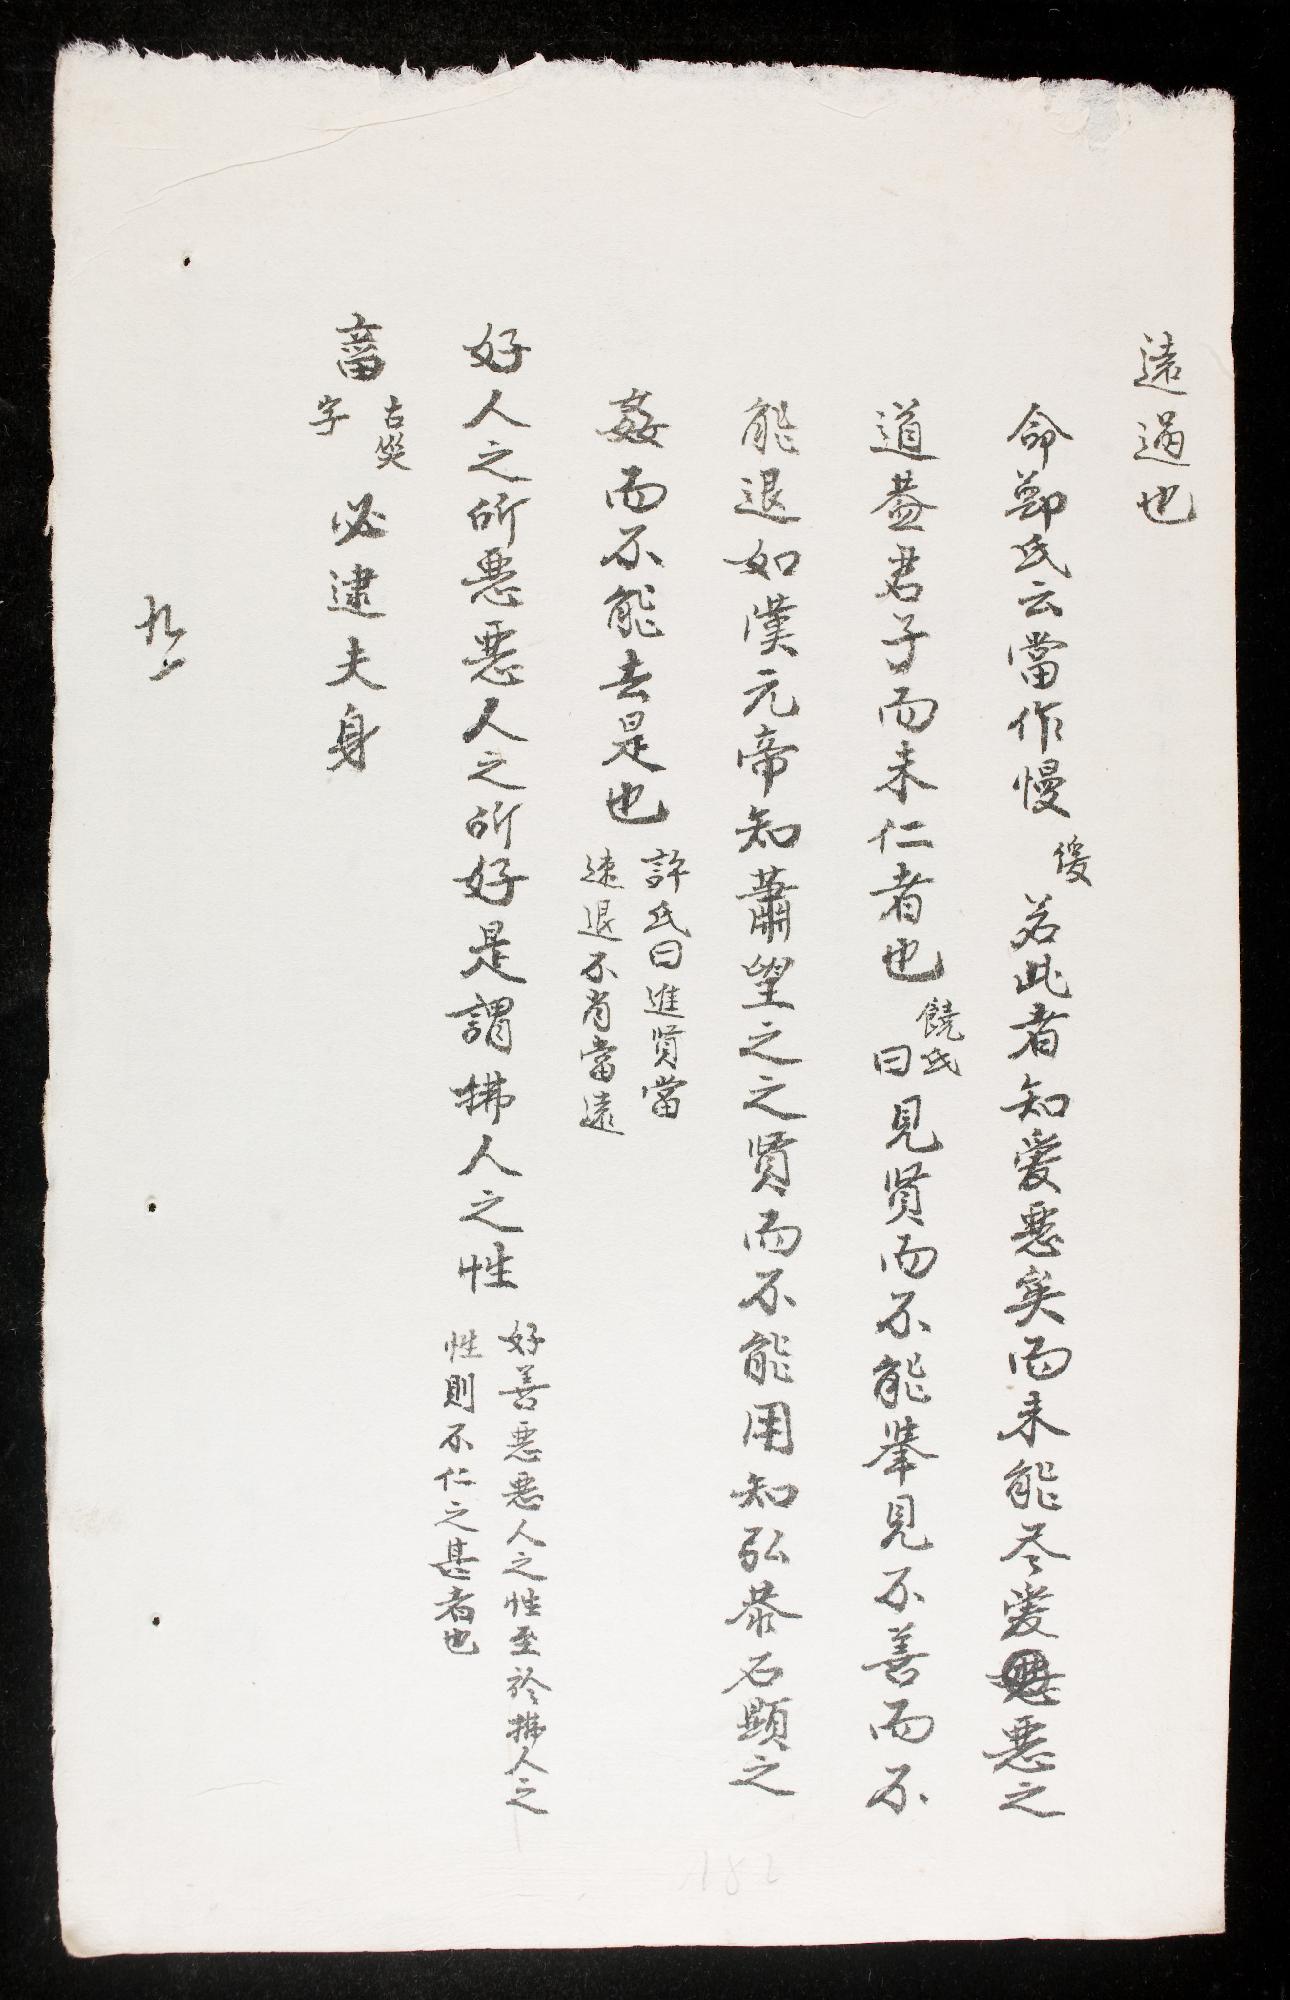 遠過也
命鄭氏云當作慢緩若此者知愛惡矣而未能尽愛惡之
道葢君子而未仁者也饒氏曰見賢而不能举見不善而不
能退如漢元帝知蕭望之之賢而不能用知弘恭石顯之
姦而不能去是也許氏曰進賢當速退不肖當遠
好人之所惡惡人之所好是謂拂人之性好善惡惡人之性至於拂人之性則不仁之甚者也
菑古災字必逮夫身
九一
182